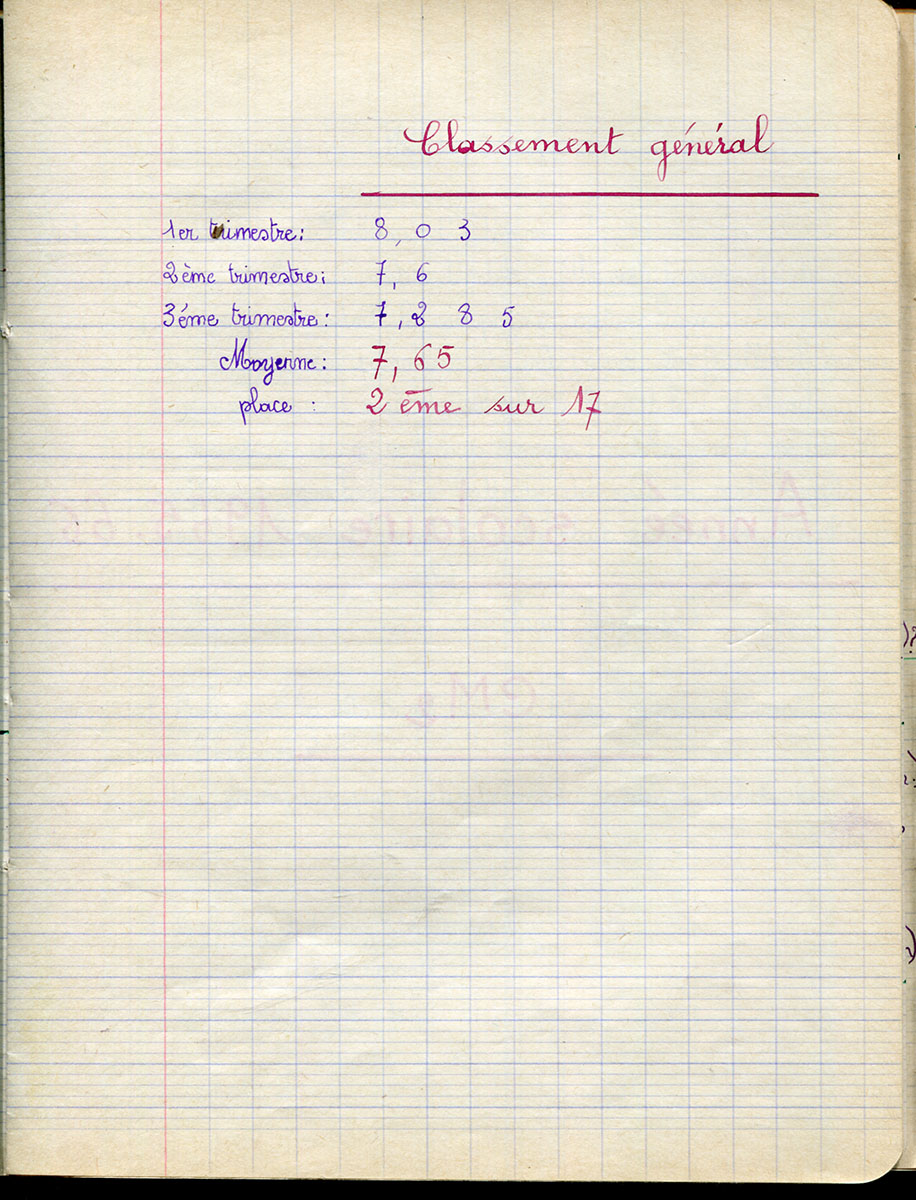 Classement général
1er trimestre: 8,03
2ème trimestre: 7,6
3éme trimestre: 7,285
Moyenne: 7,65
place : 2ème sur 17
Année scolaire